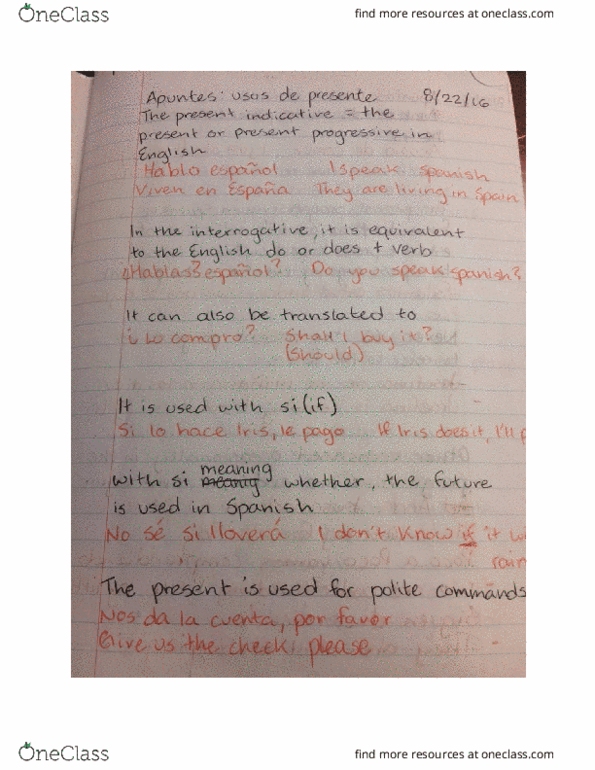 OneClass
find more resources at oneclass.com
Apuntes: usos de presente 8/22/16
The present indicative = the
present or present progressive in
English
Hablo español I speak spanish
Viven en España They are living in Spain
In the interrogative, it is equivalent
to the English do or does + verb
¿Hablas? español? Do you speak spanish?
It can also be translated to
¿ Lo compro? Shall I buy it?
(Should)
It is used with si (if)
Si lo hace Iris, le pago If Iris does it, I'll p
meaning
with si meanig whether, the future
is used in Spanish
No sé si lloverá I don't know if it w
rain
The present is used for polite commands
Nos da la cuenta, por favor
Give us the check, please
OneClass
find more resources at oneclass.com